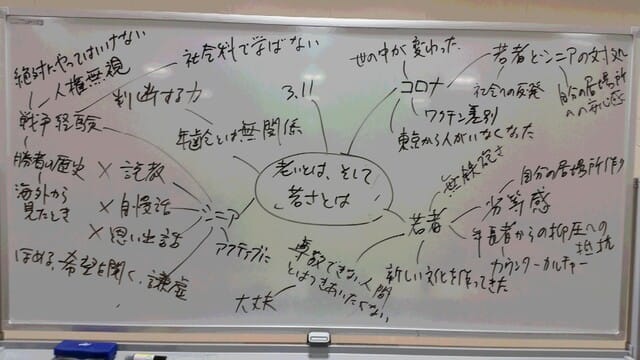 絶対にやってはいけない
人権無視
社会科で学ばない
判断する力
戦争経験
年齢とは無関係
勝者の歴史
海外から
見たとき
× 説教
× 自慢話
× 思い出話
シニア
ほめる、希望を聞く、謙虚
アクティブに
3.11
老いとは、そして
若さとは
世の中が変わった
コロナ
若者とシニアの対処
社会への反発
自分の居場所
への
ワクチン差別
東京から人がいなくなった
若者
自分の居場所作り
劣等感
年長者からの抑圧への
抵抗
カウンターカルチャー
新しい文化を作ってきた
尊敬できない人間
とはつきあいたくない
大丈夫